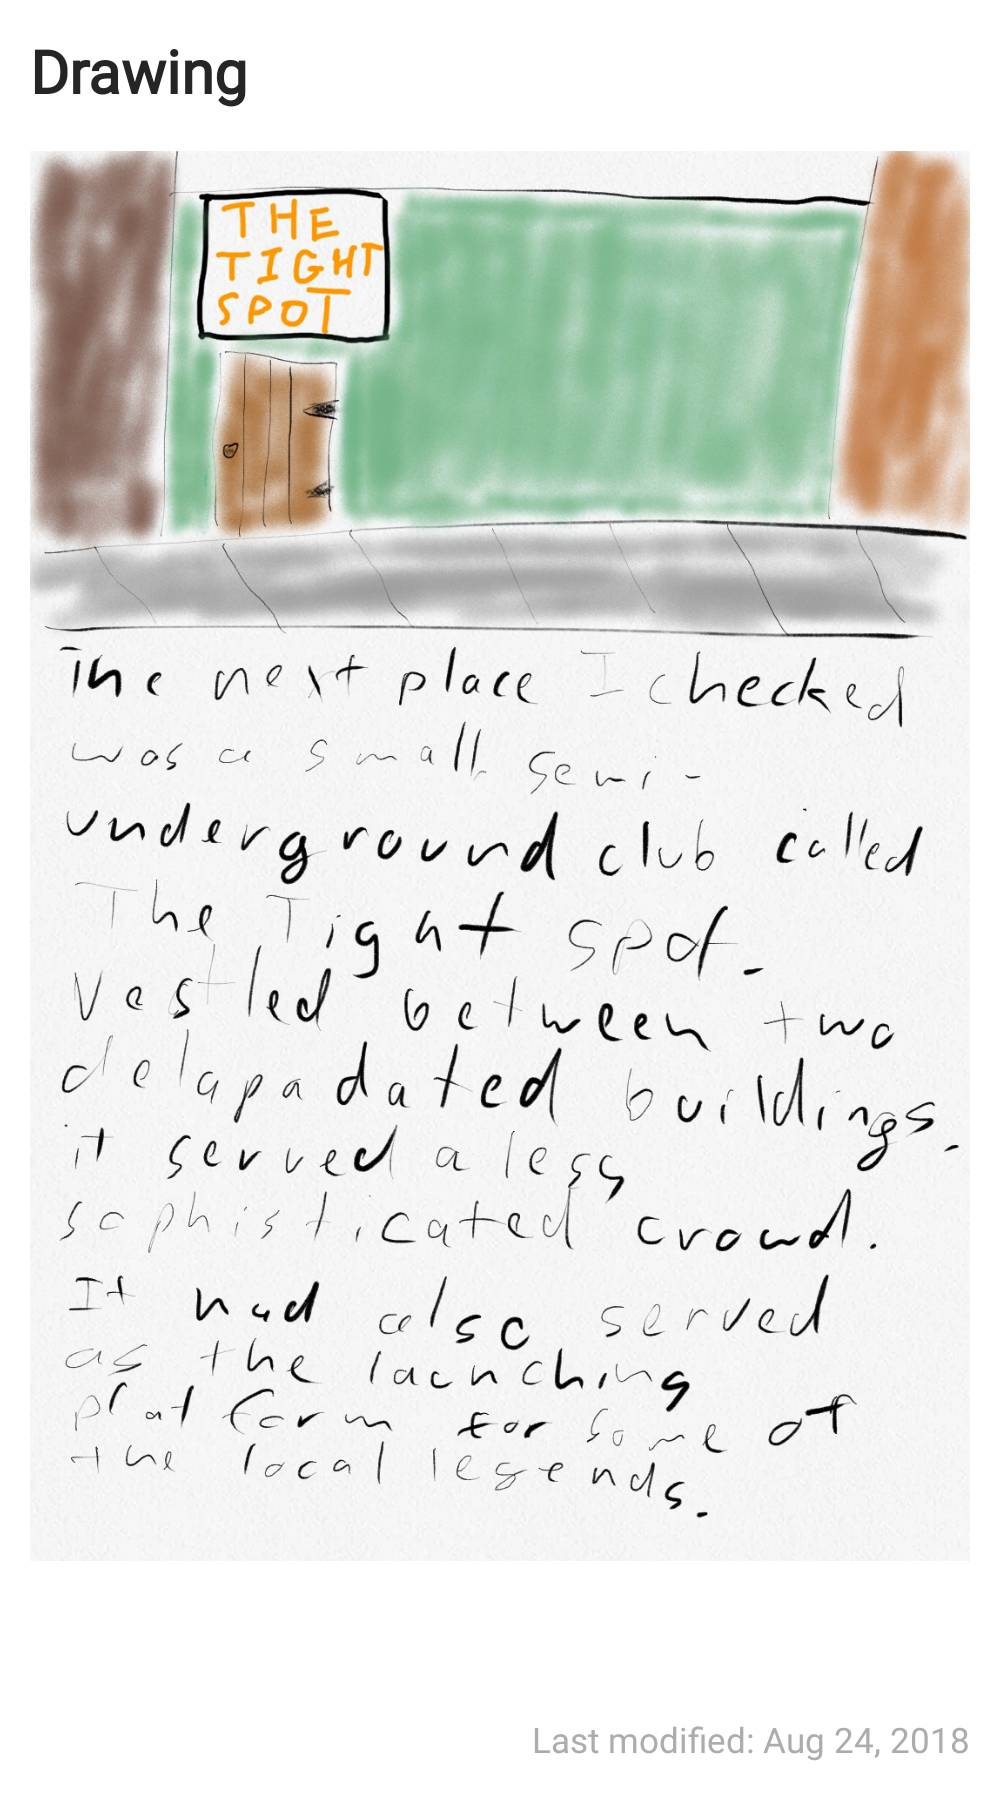 Drawing
THE
TIGHT
SPOT
The next place I checked
was a small semi-
underground club called
The Tight Spot.
Vestled between two
delapadated buildings.
it served a less
sophisticated crowd.
It had also served
as the launching
platform for some of
the local legends.
Last modified: Aug 24, 2018